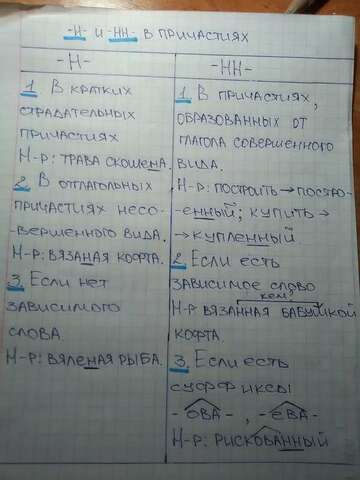 -Н- и -НН- в причастиях
-Н-
1. В кратких
страдательных
причастиях
Н-р: трава скошена.
2. В отглагольных
причастиях несо-
-вершенного вида.
Н-р: вязаная кофта.
3. Если нет
зависимого
слова.
Н-р: вяленая рыба.
-НН-
1. В причастиях,
образованных от
глагола совершенного
вида.
Н-р: построить → постро-
-енный; купить →
→ купленный.
2. Если есть
зависимое слово
кем
Н-р вязанная бабушкой
кофта.
3. Если есть
суффиксы
-ова-, -ева-
Н-р: рискованный